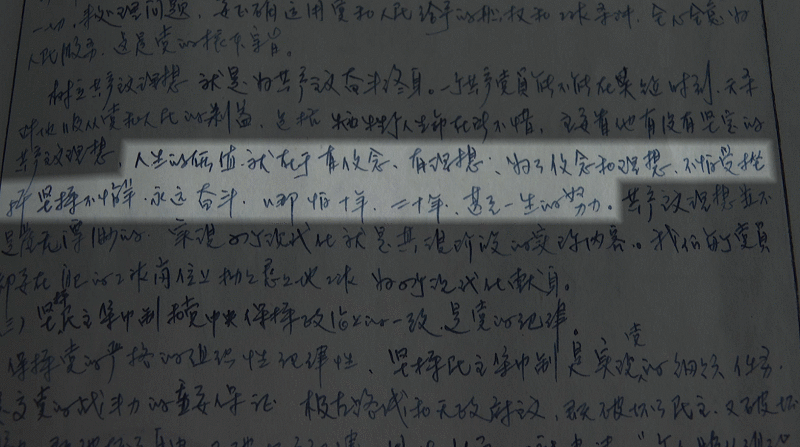 一切，来处理问题，要正确运用党和人民给予的权和工作条件，全心全意为
人民服务，这是党的根本宗旨。
树立共产主义理想 就是为共产主义奋斗终身。一个共产党员能不能在某些时刻、
对他服从党和人民的利益，包括牺牲个人生命在所不惜，主要看他有没有坚定的
共产主义理想，人生的价值就在于有信念、有理想；为了信念和理想，不怕受挫
折 坚持不懈 永远奋斗，哪怕十年，二十年，甚至一生的努力。共产主义理想并不
是虚无渺的，实现四个现代化就是其现阶段的实际内容。我们的党员
都要在自己的工作岗位上 为四个现代化献身。
三）坚持民主集中制 和党中央保持政治上的一致，是党的纪律。
保持党的严格的组织性纪律性，坚持民主集中制是实现党的任务
党的战斗力的重要保证 极右路线和无政府主义，破坏了民主，又破坏